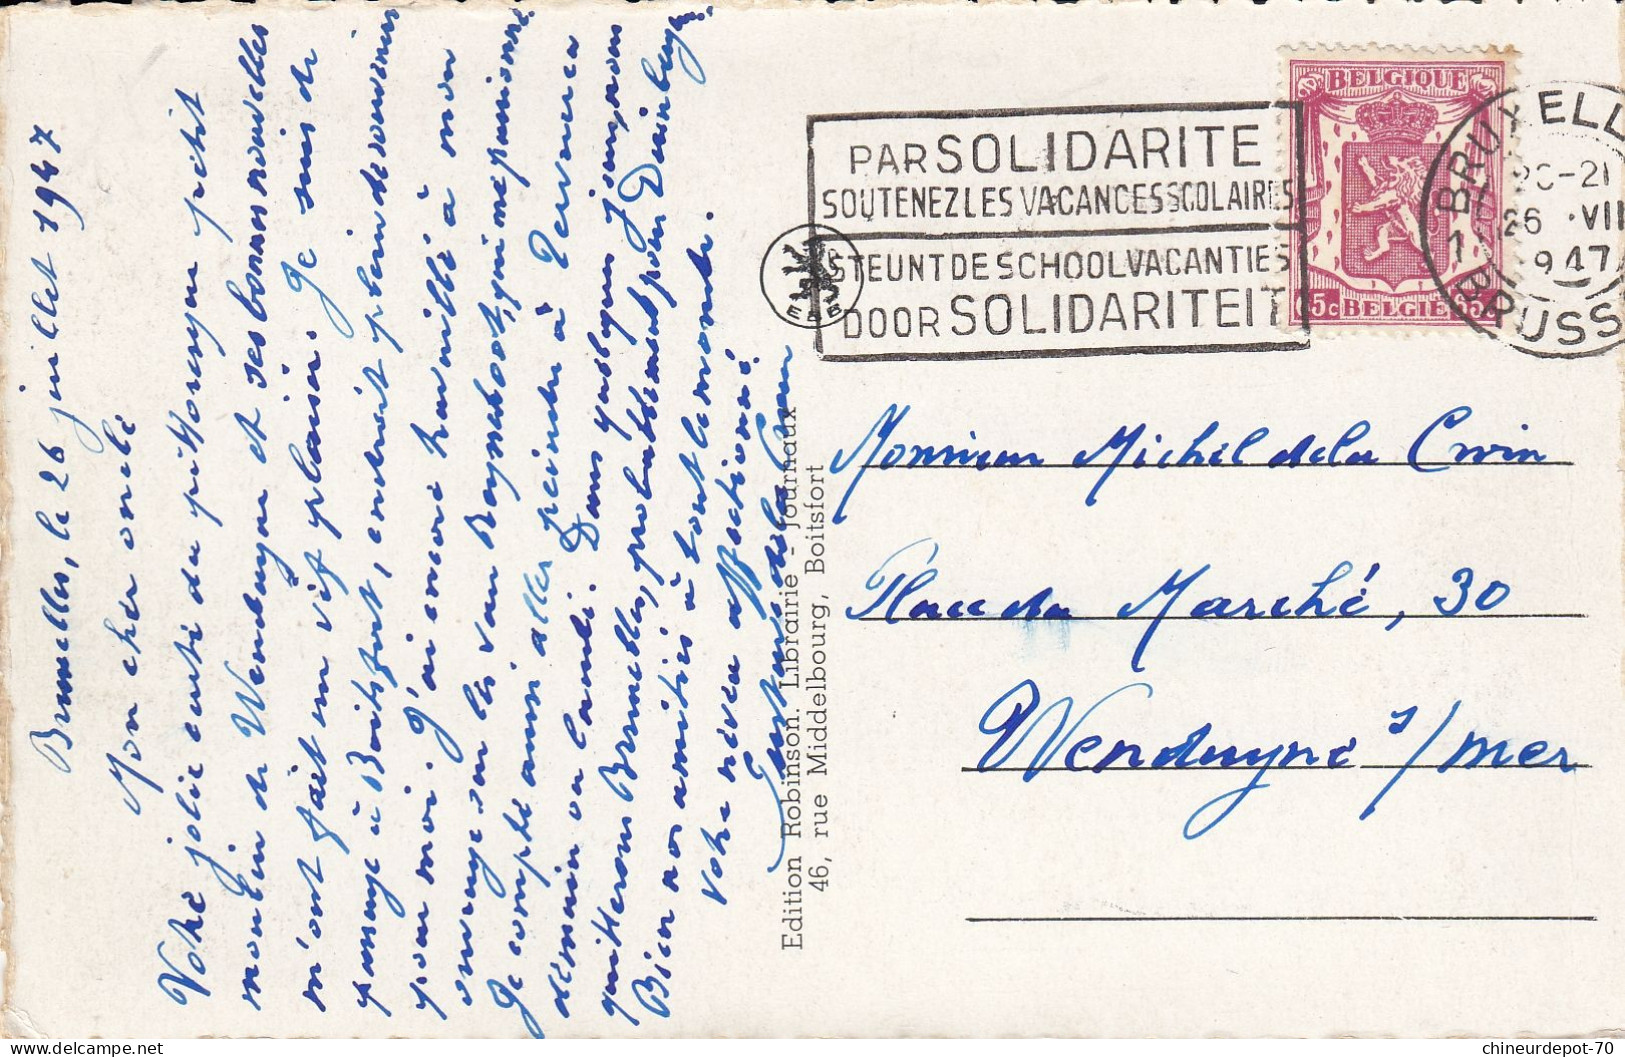 Bruxelles, le 26 juillet 1947
Mon cher oncle
Votre jolie carte du pittoresque petit
moulin de Wenduyne et ses bonnes nouvelles
m'ont fait un vif plaisir. Je suis de
passage à Boitsfort, endroit plein de souvenirs
pour moi. J'ai encore travaillé à mon
ouvrage sur les van Reymbroot, qui me passionne.
Je compte aussi aller peindre à Tervueren
demain ou lundi. Dans quelques jours, nous
quitterons Bruxelles, probablement pour Duinbergen.
Bien nos amitiés à tout le monde.
Votre neveu affectionné
de la Cwin
Edition Robinson. Librairie - Journaux
46, rue Middelbourg, Boitsfort
PAR SOLIDARITE
SOUTENEZ LES VACANCES SCOLAIRES
STEUNT DE SCHOOLVACANTIES
DOOR SOLIDARITEIT
BELGIQUE
65c BELGIE 65c
BRUXELL
1
26 VII
1947
BRUSS
Monsieur Michel de la Cwin
Place du Marché, 30
Wenduyne s/mer
chineurdepot-70